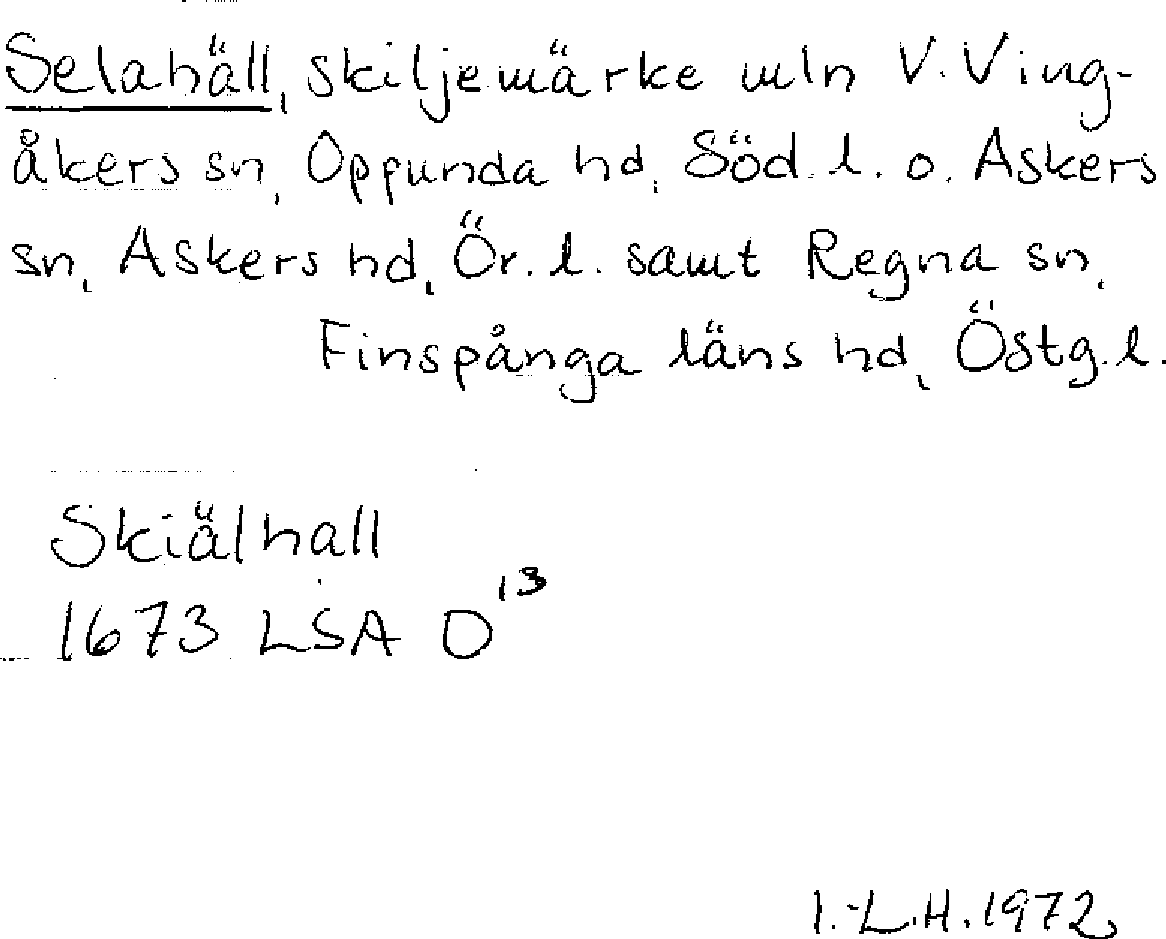 Selahäll, skiljemärke mln V. Ving-
åkers sn, Oppunda hd, Söd. l. o. Askers
sn, Askers hd, Ör. l. samt Regna sn,
Finspånga läns hd, Östg. l.
Skiälhall
1673 LSA D¹³
I.-L.H. 1972